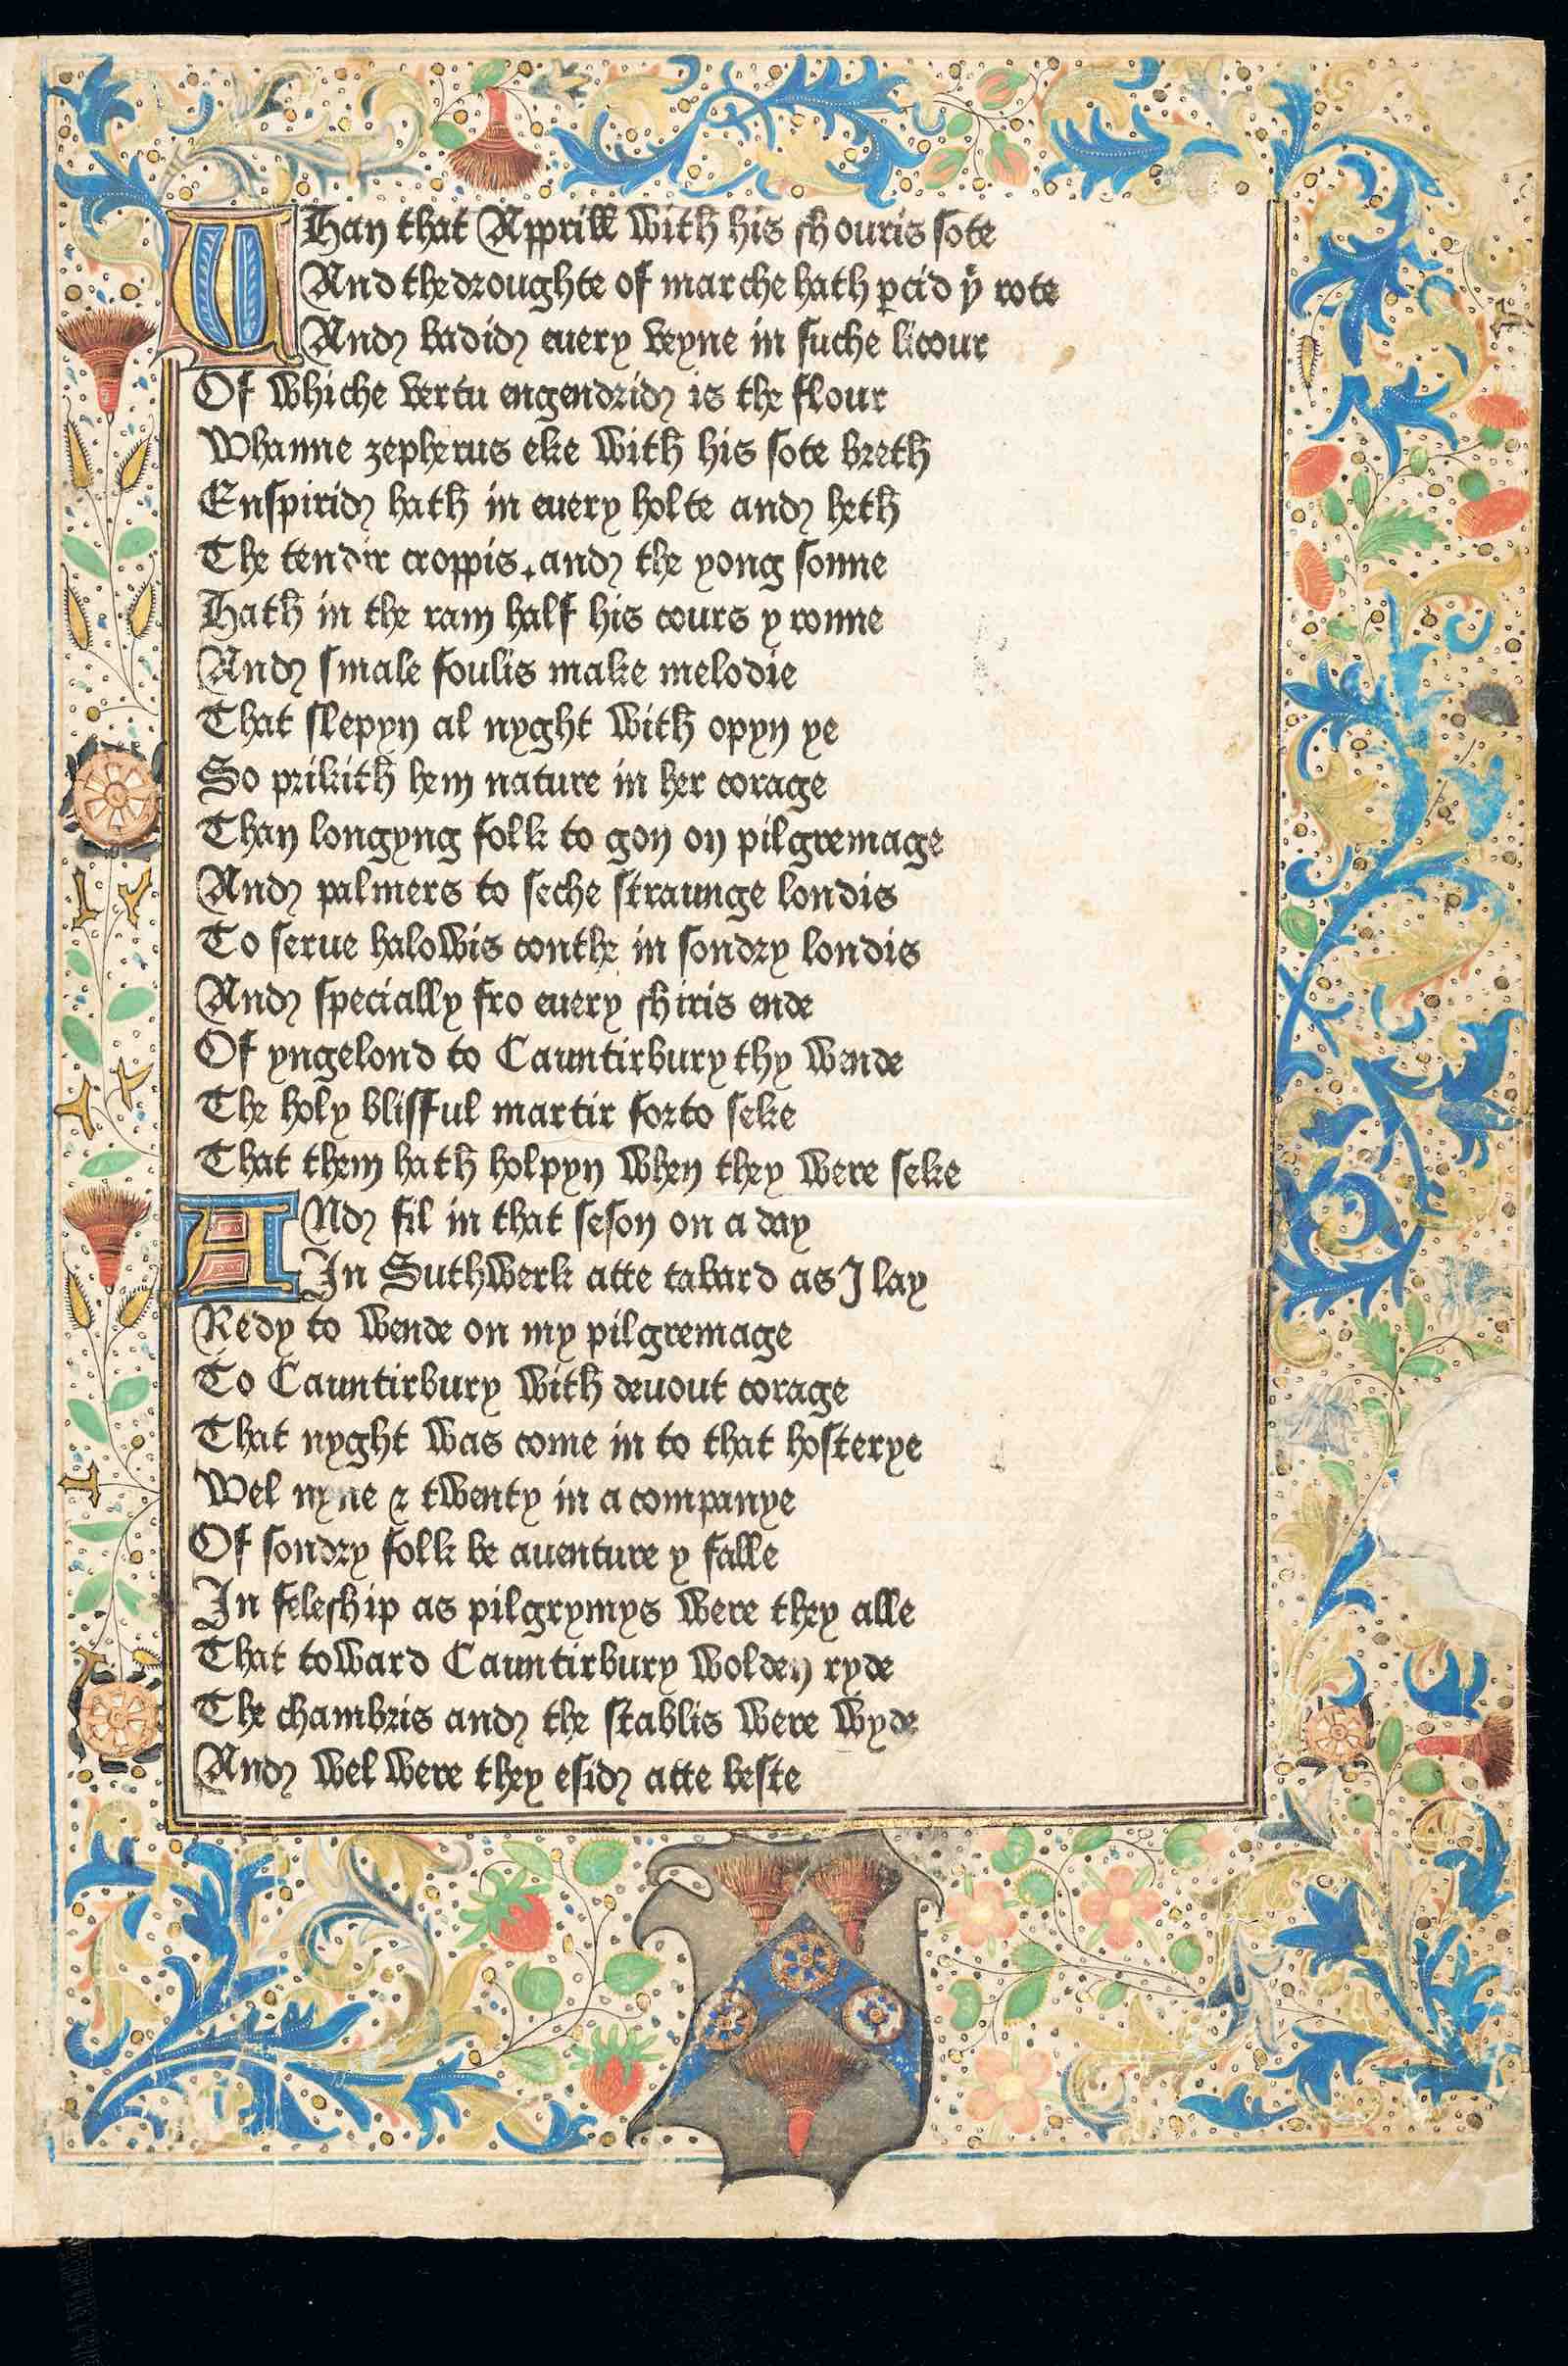 WHan that Apprill with his shouris sote
And the droughte of marche hath ꝑcid þe rote
And badid euery veyne in suche licour
Of whiche vertu engendrid is the flour
Whanne zepherus eke with his sote breth
Enspirid hath in euery holte and heth
The tendir croppis, and the yong sonne
Hath in the ram half his cours y ronne
And smale foulis make melodie
That slepyn al nyght with opyn ye
So prikith hem nature in her corage
Than longyng folk to gon on pilgremage
And palmers to seche straunge londis
To serue halowis conthe in sondry londis
And specially fro euery shiris ende
Of yngelond to Cauntirbury thy wende
The holy blisful martir forto seke
That them hath holpyn when they were seke
ANd fil in that seson on a day
In Suthwerk atte tabard as I lay
Redy to wende on my pilgremage
To Cauntirbury with deuout corage
That nyght was come in to that hosterye
Wel nyne & twenty in a companye
Of sondry folk be auenture y falle
In feleship as pilgrymys were they alle
That toward Cauntirbury wolden ryde
The chambris and the stablis were wyde
And wel were they esid atte beste